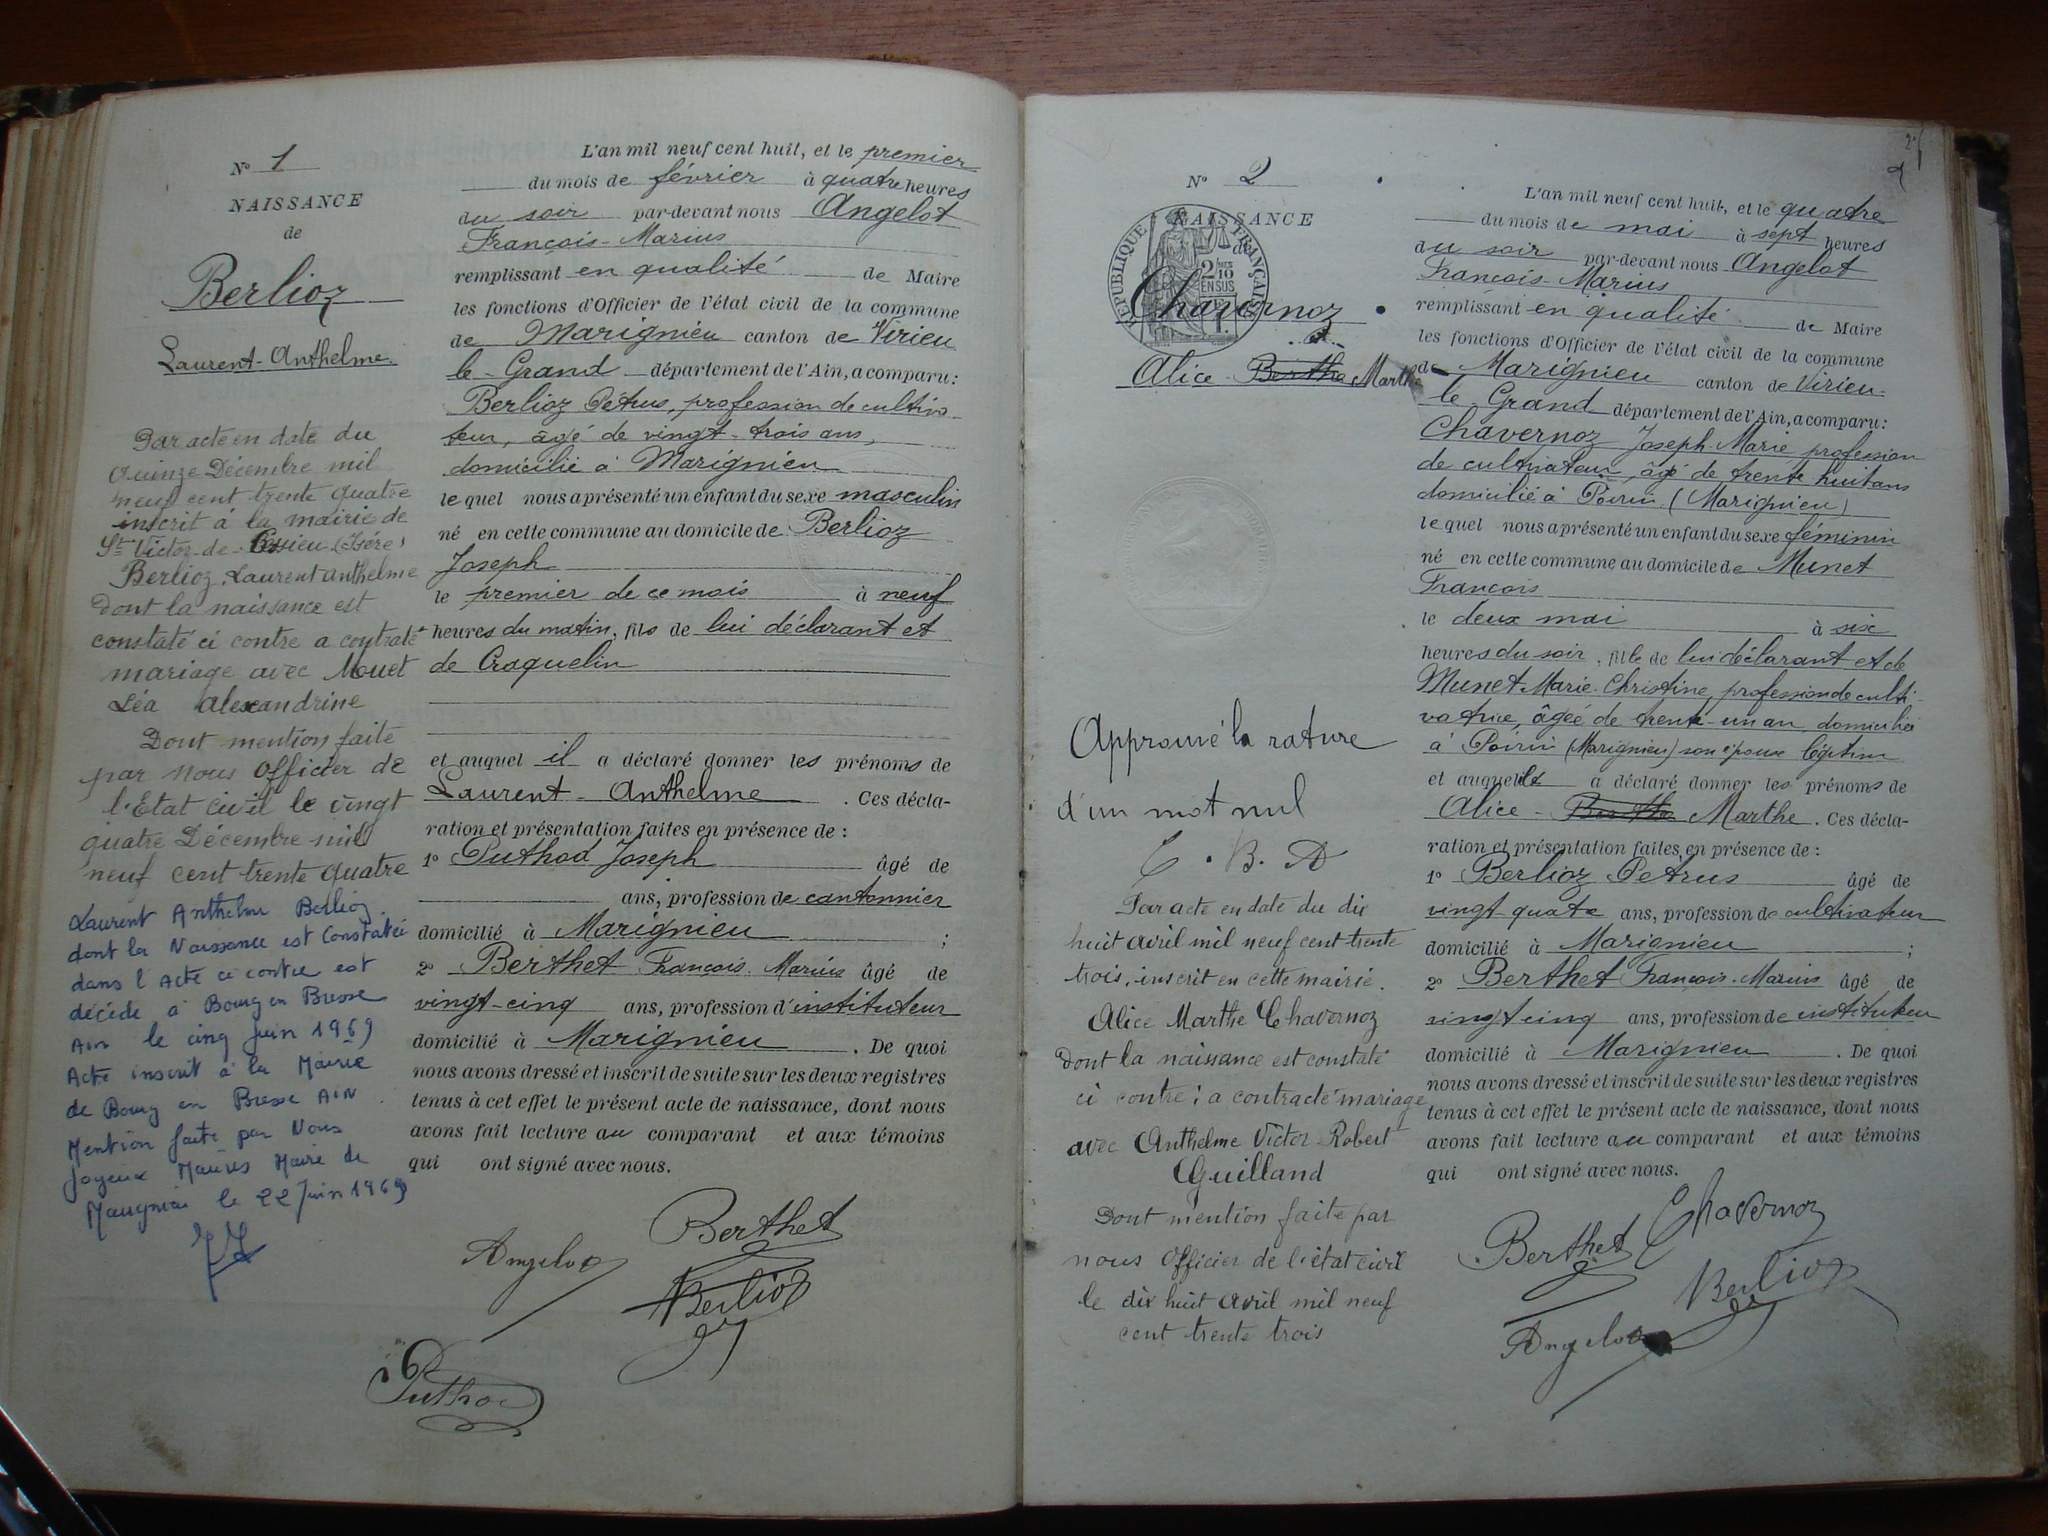 N° 1
NAISSANCE
de
Berlioz
Laurent-Anthelme
Par acte en date du
Quinze Décembre mil
neuf cent trente quatre
inscrit à la mairie de
St Victor-de-Cessieu (Isére)
Berlioz Laurent anthelme
dont la naissance est
constaté ci contre a contracté
mariage avec Mouet
Léa Alexandrine
Dont mention faite
par nous Officier de
l'Etat civil le vingt
quatre Décembre mil
neuf cent trente quatre
Laurent Anthelme Berlioz
dont la Naissance est Constatée
dans l'Acte ci contre est
décédé à Bourg en Bresse
Ain le cinq Juin 1969
Acte inscrit à la Mairie
de Bourg en Bresse AIN.
Mention faite par Nous
Joyeux Maire de
le 22 Juin 1969
L'an mil neuf cent huit, et le premier
du mois de février à quatre heures
du soir par-devant nous Angelot
François-Marius
remplissant en qualité de Maire
les fonctions d'Officier de l'état civil de la commune
de Marignieu canton de Virieu
le-Grand département de l'Ain, a comparu:
Berlioz Pétrus, profession de cultiva-
teur, âgé de vingt-trois ans,
domicilié à Marignieu
lequel nous a présenté un enfant du sexe masculin
né en cette commune au domicile de Berlioz
Joseph
le premier de ce mois à neuf
heures du matin, fils de lui déclarant et
de Craquelin
et auquel il a déclaré donner les prénoms de
Laurent-Anthelme. Ces décla-
ration et présentation faites en présence de:
1° Puthod Joseph âgé de
ans, profession de cantonnier
domicilié à Marignieu;
2° Berthet François-Marius âgé de
vingt-cinq ans, profession d'instituteur
domicilié à Marignieu. De quoi
nous avons dressé et inscrit de suite sur les deux registres
tenus à cet effet le présent acte de naissance, dont nous
avons fait lecture au comparant et aux témoins
qui ont signé avec nous.
Berthet
Angelot
Berlioz
Puthod
2
N° 2
NAISSANCE
de
RÉPUBLIQUE FRANÇAISE
2/10
EN SUS
Chavernoz
Alice Berthe Marthe
Approuvé la rature
d'un mot nul
C. B. A
Par acte en date du dix
huit avril mil neuf cent trente
trois, inscrit en cette mairie.
Alice Marthe Chavernoz
dont la naissance est constaté
ci contre; a contracté mariage
avec Anthelme Victor Robert
Guilland
Dont mention faite par
nous Officier de l'état civil
le dix huit avril mil neuf
cent trente trois
L'an mil neuf cent huit, et le quatre
du mois de mai à sept heures
du soir par-devant nous Angelot
François-Marius
remplissant en qualité de Maire
les fonctions d'Officier de l'état civil de la commune
de Marignieu canton de Virieu-
le-Grand département de l'Ain, a comparu:
Chavernoz Joseph-Marie profession
de cultivateur, âgé de trente huit ans
domicilié à Poirin (Marignieu)
lequel nous a présenté un enfant du sexe féminin
né en cette commune au domicile de Munet
François
le deux mai à six
heures du soir, fille de lui déclarant et de
Munet Marie-Christine, profession de culti-
vatrice, âgée de trente-un an, domiciliée
à Poirin (Marignieu) son épouse légitime
et auquel il a déclaré donner les prénoms de
Alice-Berthe Marthe. Ces décla-
ration et présentation faites en présence de:
1° Berlioz Pétrus âgé de
vingt-quatre ans, profession de cultivateur
domicilié à Marignieu;
2° Berthet François-Marius âgé de
vingt cinq ans, profession de instituteur
domicilié à Marignieu. De quoi
nous avons dressé et inscrit de suite sur les deux registres
tenus à cet effet le présent acte de naissance, dont nous
avons fait lecture au comparant et aux témoins
qui ont signé avec nous.
Chavernoz
Berthet
Berlioz
Angelot